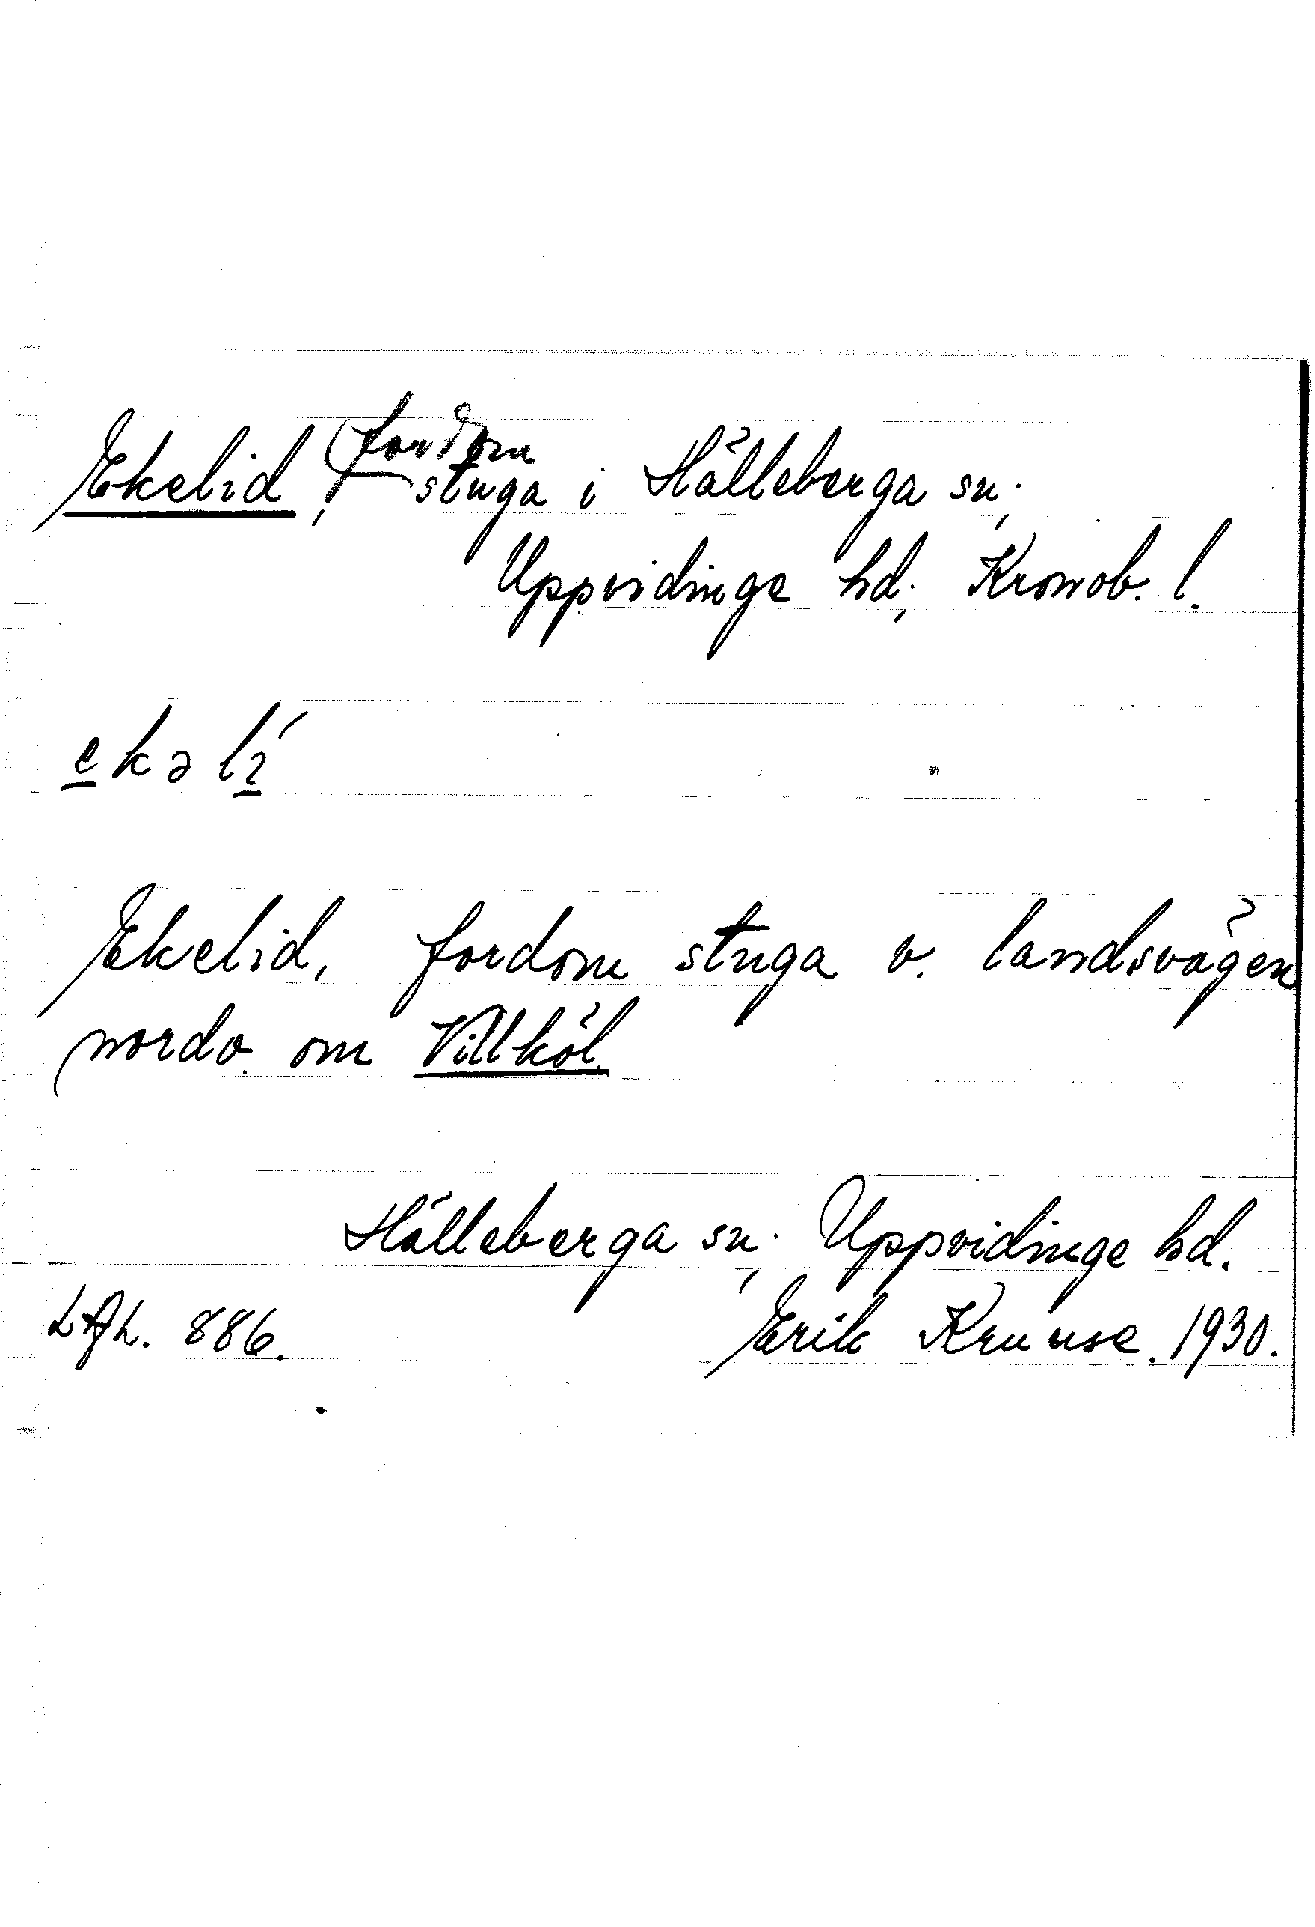 Ekelid, fordom stuga i Hälleberga sn;
Uppvidinge hd; Kronob. l.
ekəlí
Ekelid, fordom stuga v. landsvägen
nordv. om Villköl.
Hälleberga sn; Uppvidinge hd.
886. Erik Kruuse. 1930.